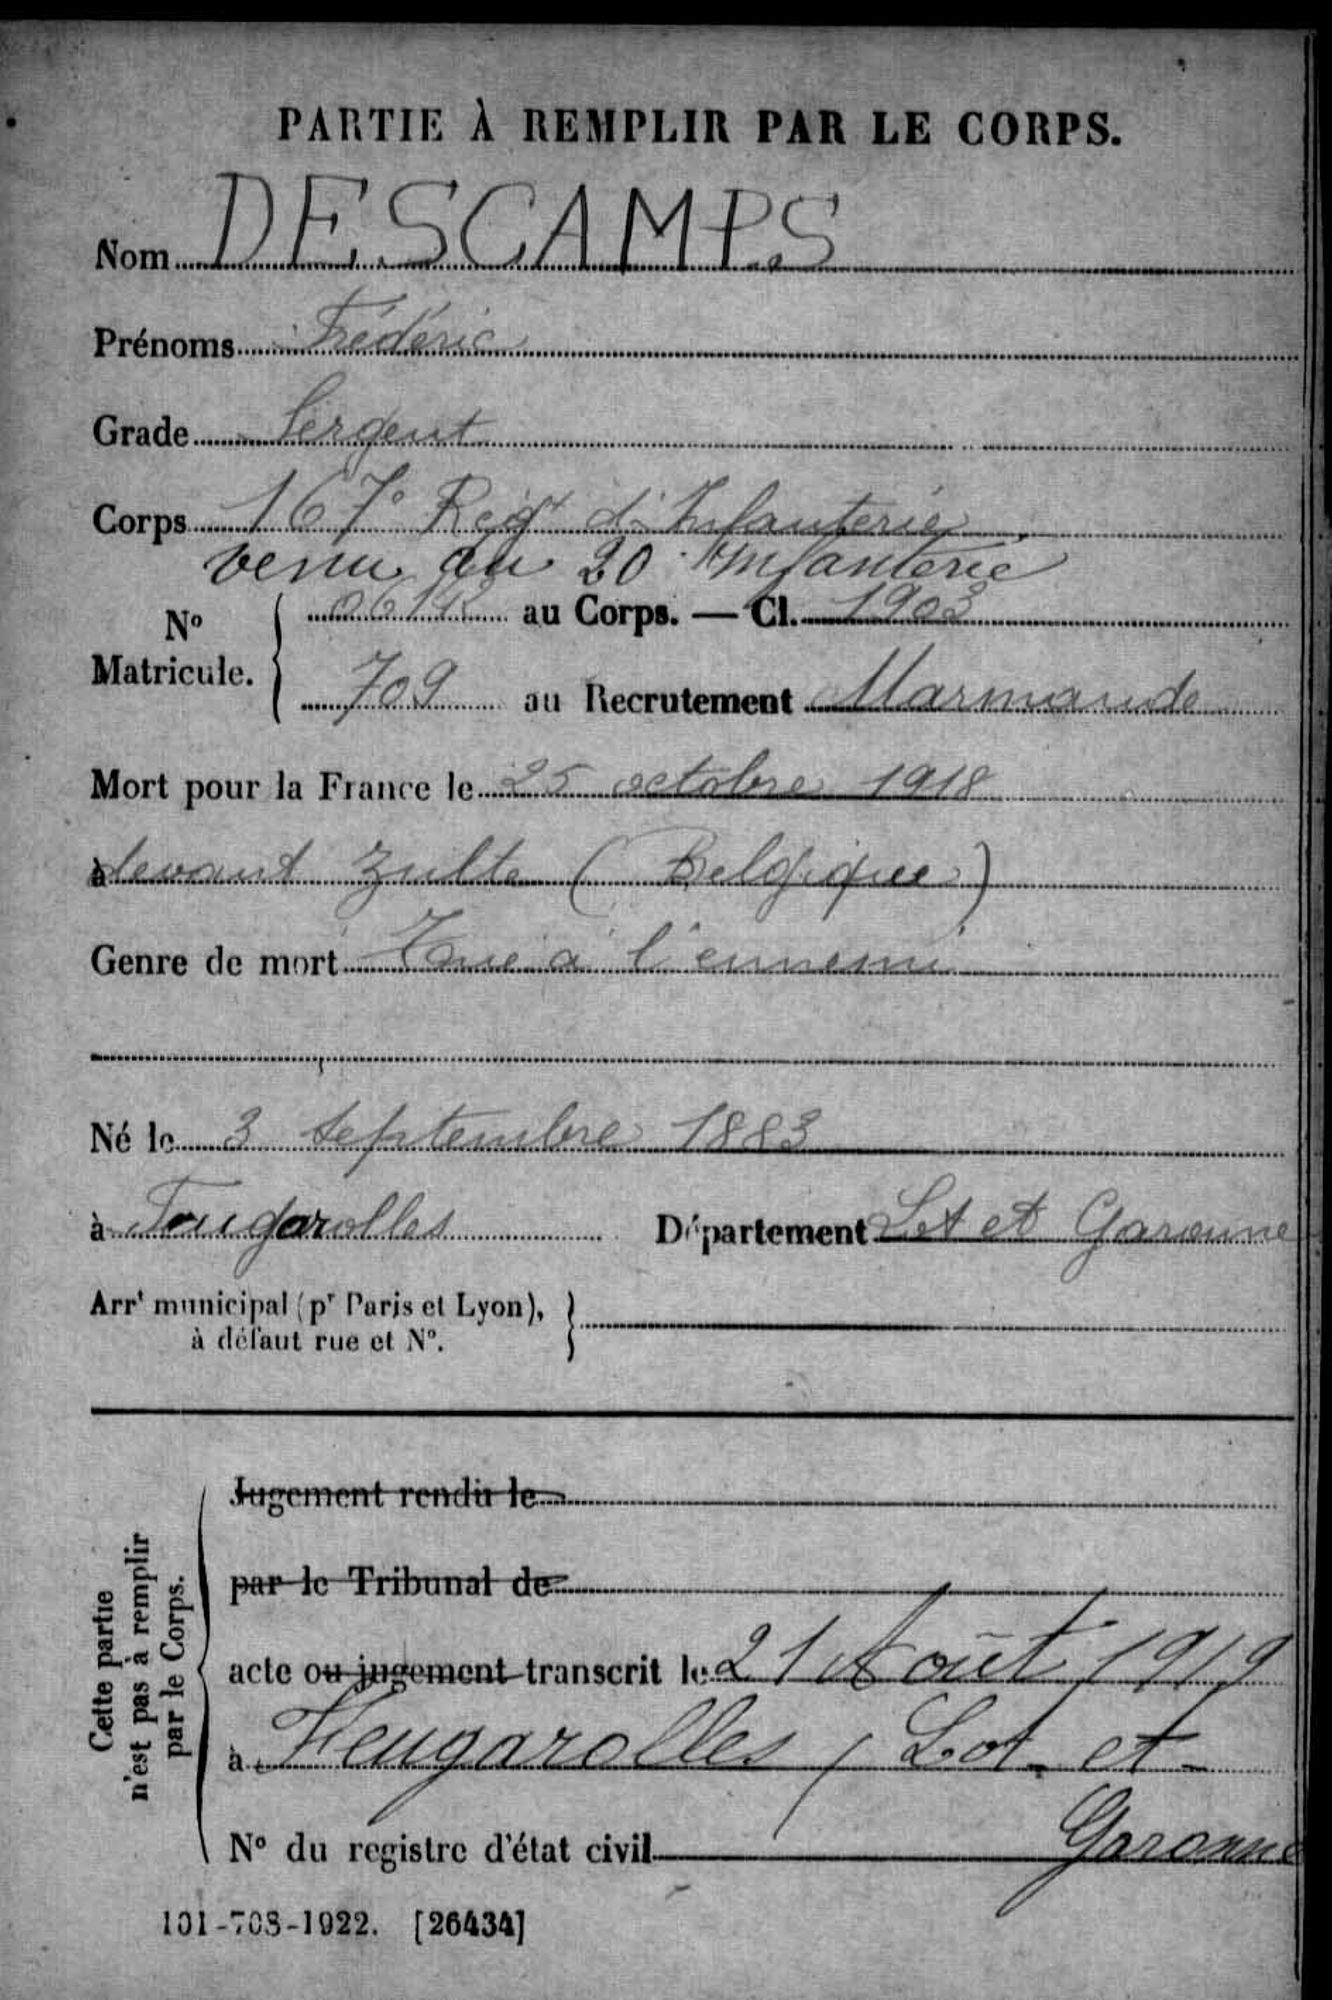 PARTIE À REMPLIR PAR LE CORPS.
Nom DESCAMPS
Prénoms Frédéric
Grade Sergent
Corps 167° Régt d'Infanterie
venu du 20 Infanterie
No
Matricule.
au Corps. — Cl. 1903
709 au Recrutement Marmande
Mort pour la France le 25 octobre 1918
à devant Zulte (Belgique)
Genre de mort Tué à l'ennemi
Né le 3 septembre 1883
à Feugarolles Département Lot et Garonne
Arrt municipal (pr Paris et Lyon),
à défaut rue et No.
Cette partie
n'est pas à remplir
par le Corps.
Jugement rendu le
par le Tribunal de
acte ou jugement transcrit le 21 Août 1919
à Feugarolles / Lot-et-
No du registre d'état civil Garonne
101-708-1922. [26434]